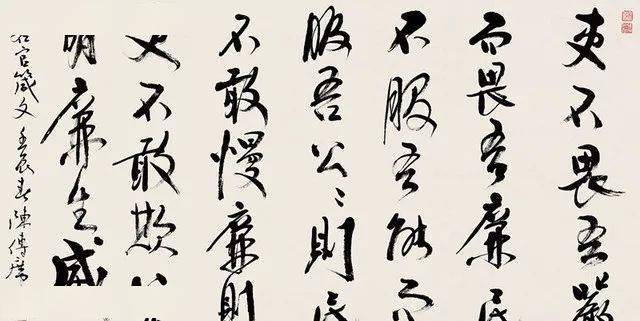 吏不畏吾嚴
而畏吾廉民
不服吾能而
服吾公〻則民
不敢慢廉則
吏不敢欺公
明廉生威
官箴文 壬辰春陳傳席